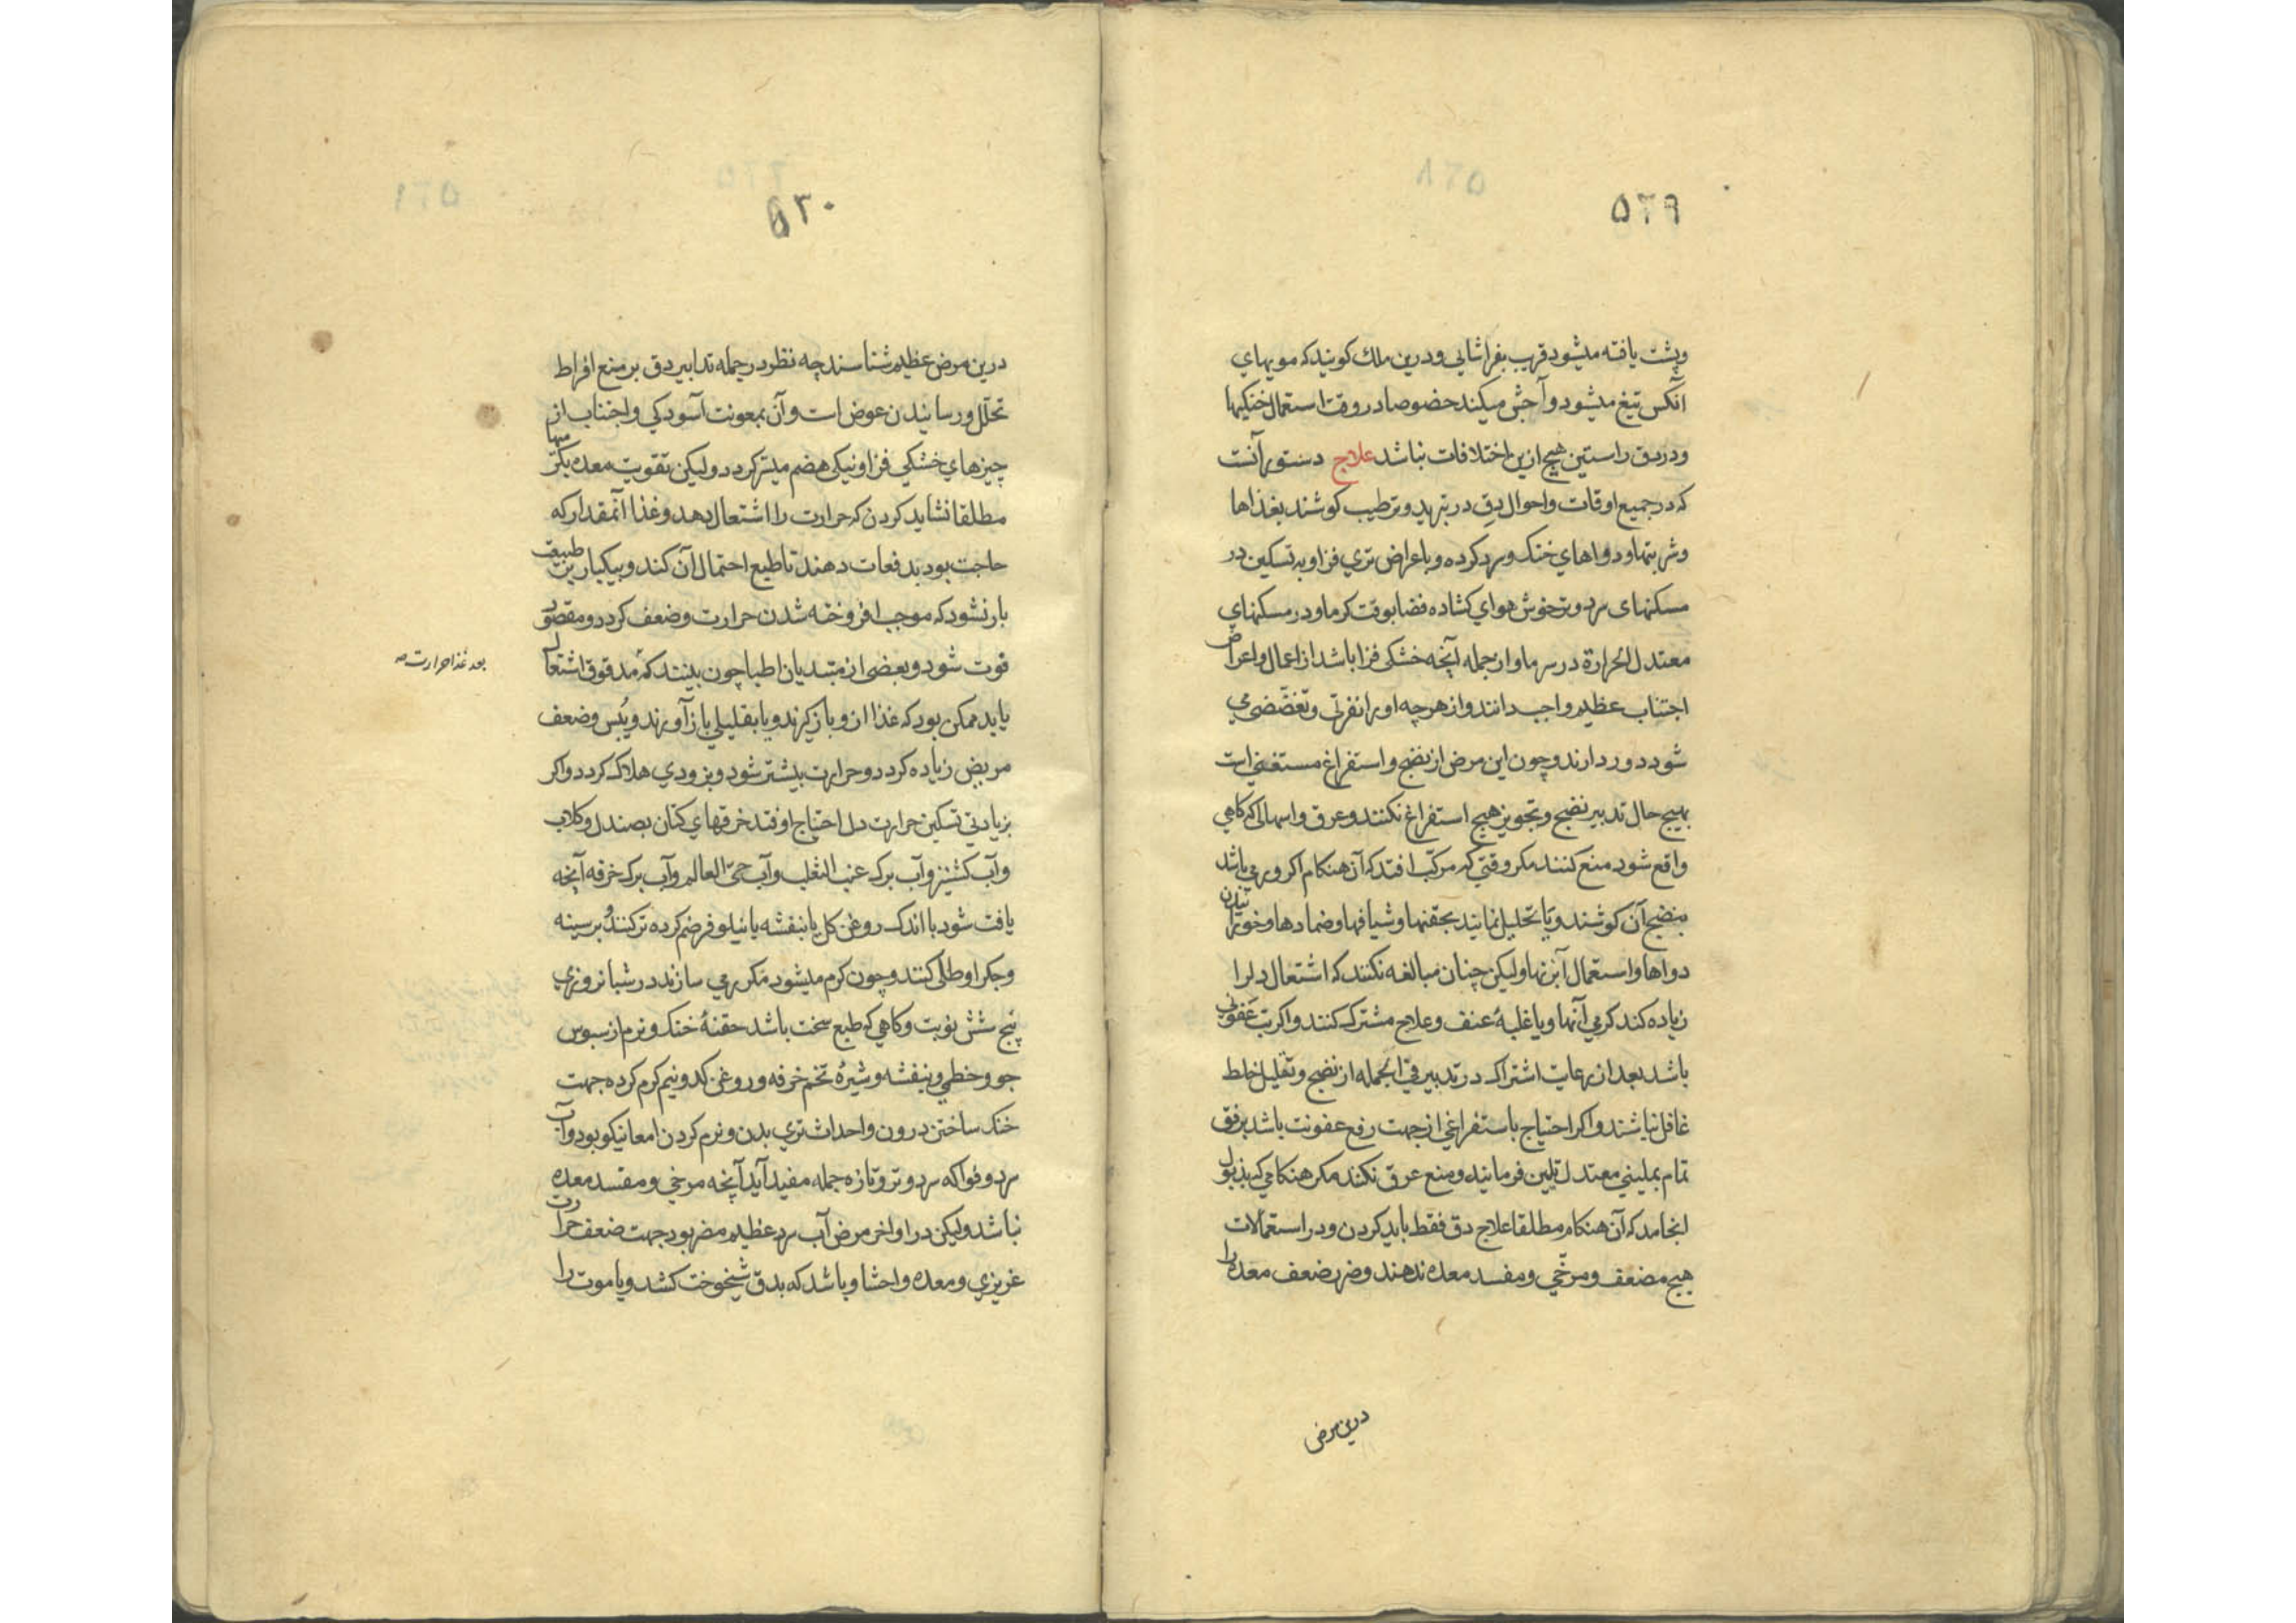 ۵۲۹
وپشت یافته میشود قریب بفراشایی ودرین ملك کویند که مویهای
آنکس تیغ میشود وآجش میکند خصوصا در وقت استعمال خنکیها
ودر دق راستین هیچ ازین اختلافات نباشد علاج دستور آنست
که در جمیع اوقات واحوال دق در تبرید وترطیب کوشند بغذاها
وشربتها ودواهای خنک وسرد کرده وباعراض تری فزا وبه تسکین در
مسکنهای سرد وتر خوش هوای کشاده فضا بوقت کرما ودر مسکنهای
معتدل الحرارة در سرما واز جمله آنچه خشکی فزا باشد از اعمال واعراض
اجتناب عظیم واجب دانند واز هرچه او را نفرتی وتغضّضی می
شود دور دارند وچون این مرض از نضج واستفراغ مستغنی است
بهیچ حال تدبیر نضج وتجویز هیچ استفراغ نکنند وعرق واسهالی که کاهی
واقع شود منع کنند مکر وقتی که مرکّب افتد که آن هنکام اکر ورمی باشد
بنضج آن کوشند ویا تحلیل نمایند بحقنها وشیافها وضمادها وخورانیدن
دواها واستعمال آبزنها ولیکن چنان مبالغه نکنند که اشتعال دلرا
زیاده کند کرمی آنها ویا غلبهٔ عنف وعلاج مشترک کنند واکر تب عفونی
باشد بعد از رعایت اشتراک در تدبیر فی الجمله از نضج وتقلیل خلط
غافل نباشند واکر احتیاج باستفراغی از جهت رفع عفونت باشد برفق
تمام بملینی معتدل تلیین فرمایند ومنع عرق نکنند مکر هنکامی که بذبول
انجامد که آن هنکام مطلقا علاج دق فقط باید کردن ودر استعمالات
هیچ مضعف ومرخّی ومفسد معده ندهند وضرر ضعف معده را
درین مرض
۵۳۰
درین مرض عظیم شناسند چه نظر در جمله تدابیر دق بر منع افراط
تحلّل ورسانیدن عوض است وآن بمعونت آسودکی واجتناب از
چیزهای خشکی فزا ونیکی هضم میسّر کردد ولیکن تقویت معده بکرمیها
مطلقا نشاید کردن که حرارت را اشتعال دهد وغذا آنمقدار که
حاجت بود بدفعات دهند تا طبع احتمال آن کند وبیکبار بر طبیعت
بار نشود که موجب افروخته شدن حرارت وضعف کردد ومقصود
فوت شود وبعضی از مبتدیان اطبا چون بینند که مدقوق اشتعال
بعد غذا حرارت صح
یابد ممکن بود که غذا از و باز کیرند ویا بقلیلی باز آورند ویُبس وضعف
مریض زیاده کردد وحرارت بیشتر شود وبزودی هلاک کردد واکر
بزیادتی تسکین حرارت دل احتیاج اوفتد خرقهای کتان بصندل وکلاب
وآب کشنیز وآب برک عنب الثعلب وآب حیّ العالم وآب برک خرفه آنچه
یافت شود با اندک روغن کل یا بنفشه یا نیلوفر ضم کرده تر کنند وبر سینه
وجکر او طلی کنند وچون کرم میشود مکرر می سازند در شبانروزی
پنج شش نوبت وکاهی که طبع سخت باشد حقنهٔ خنک ونرم از سبوس
جو وخطمی وبنفشه وشیرهٔ تخم خرفه وروغن کدو نیم کرم کرده جهت
خنک ساختن درون واحداث تری بدن ونرم کردن امعا نیکو بود وآب
سرد وفواکه سرد وتر وتازه جمله مفید آید آنچه مرخی ومفسد معده
نباشد ولیکن در اواخر مرض آب سرد عظیم مضر بود جهت ضعف حرارت
غریزی ومعده واحشا وباشد که بدق شیخوخت کشد ویا موت را